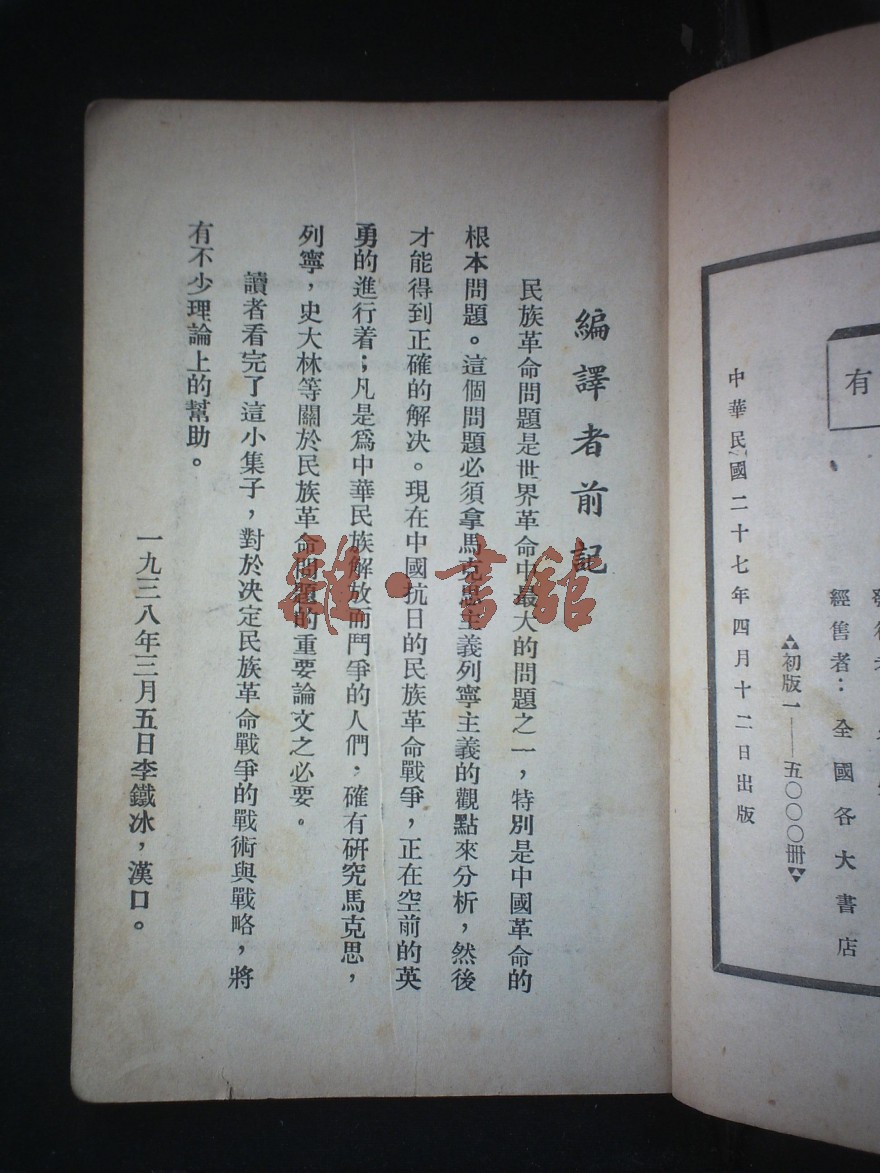 有
發行者
經售者：全國各大書店
初版一——五〇〇〇冊
中華民國二十七年四月十二日出版
編譯者前記
民族革命問題是世界革命中最大的問題之一，特別是中國革命的
根本問題。這個問題必須拿馬克思主義列寧主義的觀點來分析，然後
才能得到正確的解決。現在中國抗日的民族革命戰爭，正在空前的英
勇的進行着；凡是爲中華民族解放而鬥爭的人們，確有研究馬克思，
列寧，史大林等關於民族革命問題的重要論文之必要。
讀者看完了這小集子，對於决定民族革命戰爭的戰術與戰略，將
有不少理論上的幫助。
一九三八年三月五日李鐵冰，漢口。
雜·書館